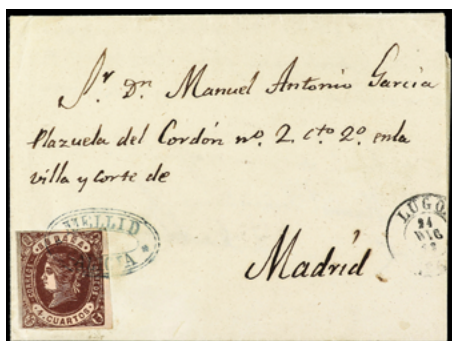 Sr Dn Manuel Antonio Garcia
Plazuela del Cordón nº. 2. cto 2º. enla
villa y corte de
Madrid
LUGO
24
DIC
MELLID
CORREOS
4 CUARTOS